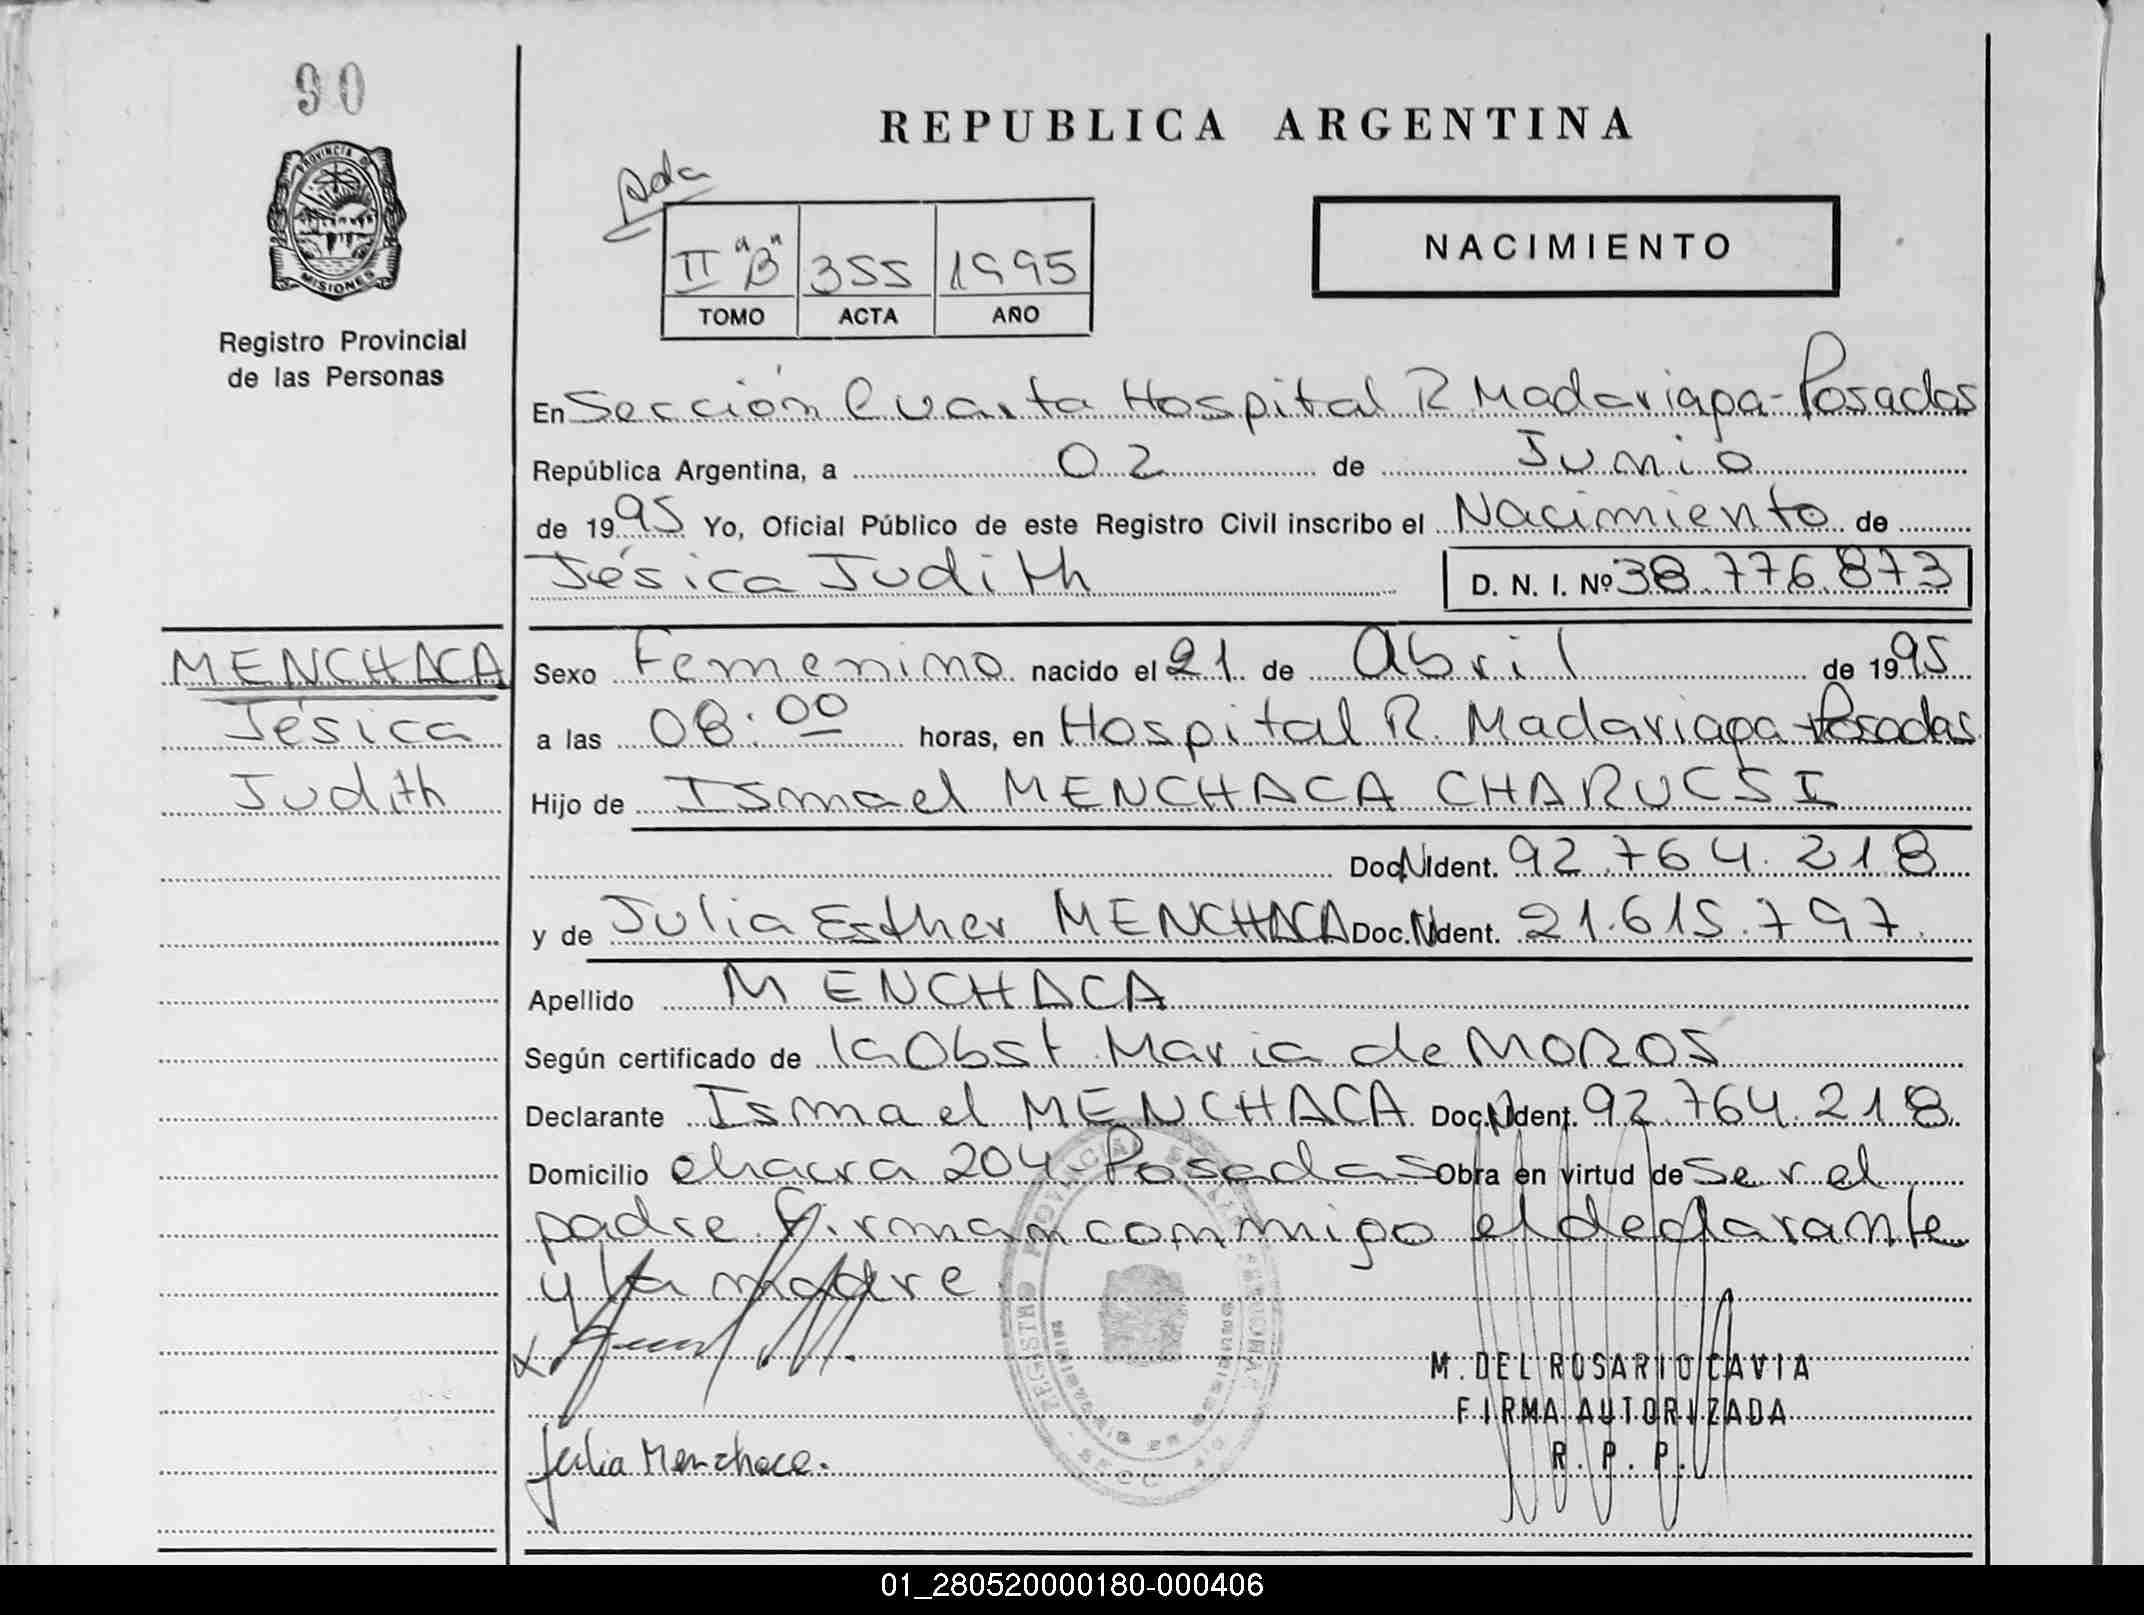 90
PROVINCIA DE
MISIONES
Registro Provincial
de las Personas
REPUBLICA ARGENTINA
II "B" 355 1995
TOMO ACTA AÑO
NACIMIENTO
En Sección Cuarta Hospital R Madariaga - Posadas
República Argentina, a 02 de Junio
de 1995 Yo, Oficial Público de este Registro Civil inscribo el Nacimiento de
Jésica Judith D. N. I. Nº 38.776.873
MENCHACA
Jésica
Judith
Sexo Femenino nacido el 21 de Abril de 1995
a las 08:00 horas, en Hospital R. Madariaga - Posadas
Hijo de Ismael MENCHACA CHARUCSI
Doc. N. Ident. 92.764.218
y de Julia Esther MENCHACA Doc. N. Ident. 21.615.797
Apellido MENCHACA
Según certificado de la Obst. Maria de MOROS
Declarante Ismael MENCHACA Doc. N. Ident. 92.764.218
Domicilio chacra 204 - Posadas Obra en virtud de ser el
padre firman conmigo el declarante
y la madre
M. DEL ROSARIO CAVIA
FIRMA AUTORIZADA
R. P. P.
Julia Menchaca.
01_280520000180-000406